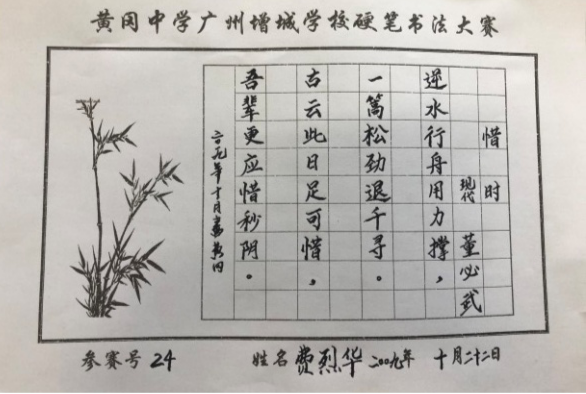 黄冈中学广州增城学校硬笔书法大赛
惜时
现代 董必武
逆水行舟用力撑，
一篙松劲退千寻。
古云此日足可惜，
吾辈更应惜秒阴。
年十月
参赛号 24 姓名 费烈华 二〇〇九年 十月二十二日